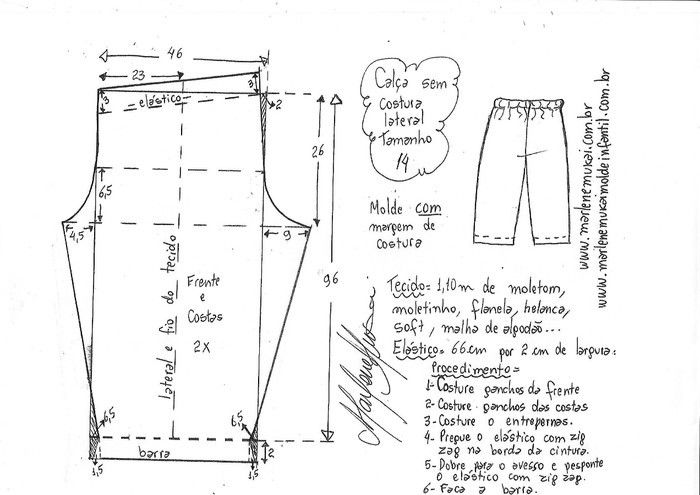 46
23
3
3
elástico
2
Calça sem
costura
lateral
Tamanho
14
26
6,5
Molde com
margem de
costura
4,5
9
96
lateral e fio do tecido
Frente
e
Costas
2x
6,5
6,5
barra
1,5
1,5
2
www.marlenemukai.com.br
www.marlenemukaimoldeinfantil.com.br
Tecido= 1,10m de moletom,
moletinho, flanela, helanca,
soft, malha de algodão...
Elástico= 66cm por 2 cm de largura:
Procedimento=
1- Costure ganchos da frente
2- Costure ganchos das costas
3- Costure o entrepernas.
4- Pregue o elástico com zig
zag na borda da cintura.
5- Dobre para o avesso e pesponte
o elástico com zig zag.
6- Faça a barra.